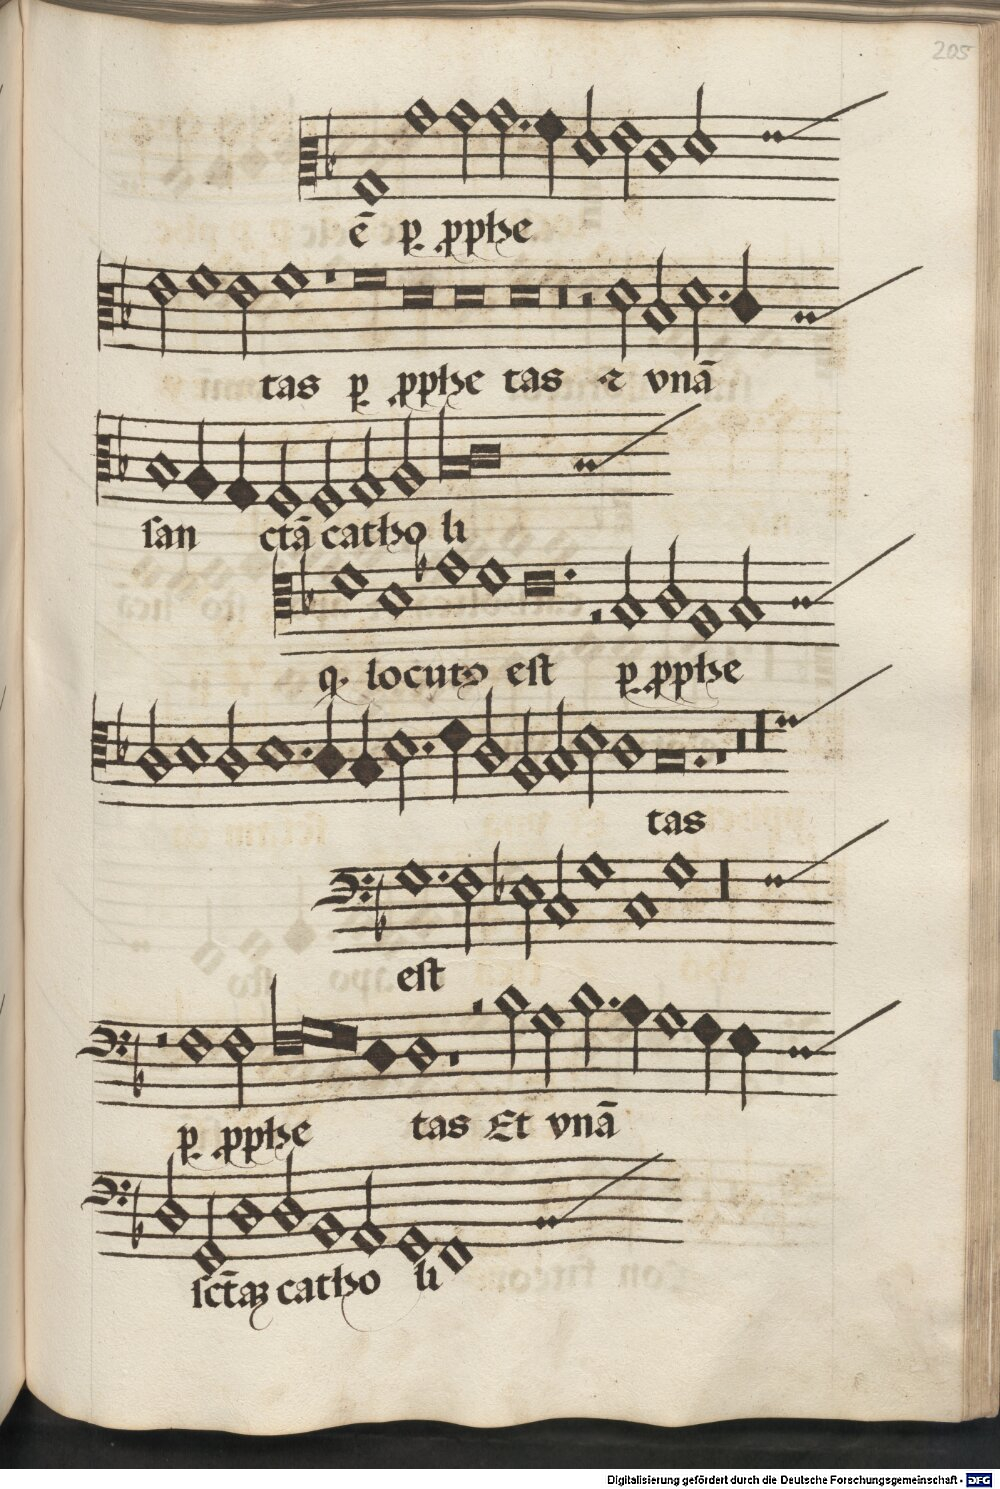 205
ē ꝑ ꝓphe
tas ꝑ ꝓphe tas ⁊ vnā
san ctā catho li
q. locutꝰ est ꝑ ꝓphe
tas
est
ꝑ ꝓphe tas Et vnā
sctāꝫ catho li
Digitalisierung gefördert durch die Deutsche Forschungsgemeinschaft - DFG